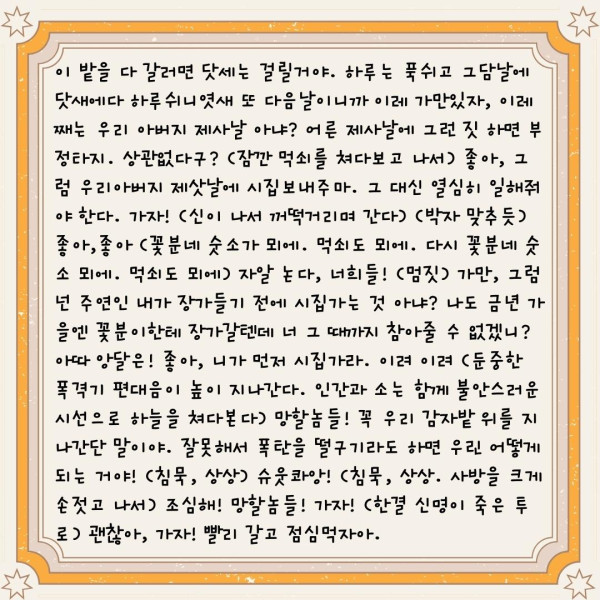 이 밭을 다 갈려면 닷세는 걸릴거야. 하루는 푹쉬고 그담날에
닷새에다 하루쉬니엿새 또 다음날이니까 이레 가만있자, 이레
째는 우리 아버지 제사날 아냐? 어른 제사날에 그런 짓 하면 부
정타지. 상관없다구? (잠깐 먹쇠를 쳐다보고 나서) 좋아, 그
럼 우리아버지 제삿날에 시집보내주마. 그 대신 열심히 일해줘
야 한다. 가자! (신이 나서 꺼떡거리며 간다) (박자 맞추듯)
좋아,좋아 (꽃분네 숫소가 뫼에. 먹쇠도 뫼에. 다시 꽃분네 숫
소 뫼에. 먹쇠도 뫼에) 자알 논다, 너희들! (멈짓) 가만, 그럼
넌 주연인 내가 장가들기 전에 시집가는 것 아냐? 나도 금년 가
을엔 꽃분이한테 장가갈텐데 너 그 때까지 참아줄 수 없겠니?
아따 앙달은! 좋아, 니가 먼저 시집가라. 이려 이려 (둔중한
폭격기 편대음이 높이 지나간다. 인간과 소는 함께 불안스러운
시선으로 하늘을 쳐다본다) 망할놈들! 꼭 우리 감자밭 위를 지
나간단 말이야. 잘못해서 폭탄을 떨구기라도 하면 우린 어떻게
되는 거야! (침묵, 상상) 슈웃콰앙! (침묵, 상상. 사방을 크게
손젓고 나서) 조심해! 망할놈들! 가자! (한결 신명이 죽은 투
로) 괜찮아, 가자! 빨리 갈고 점심먹자아.